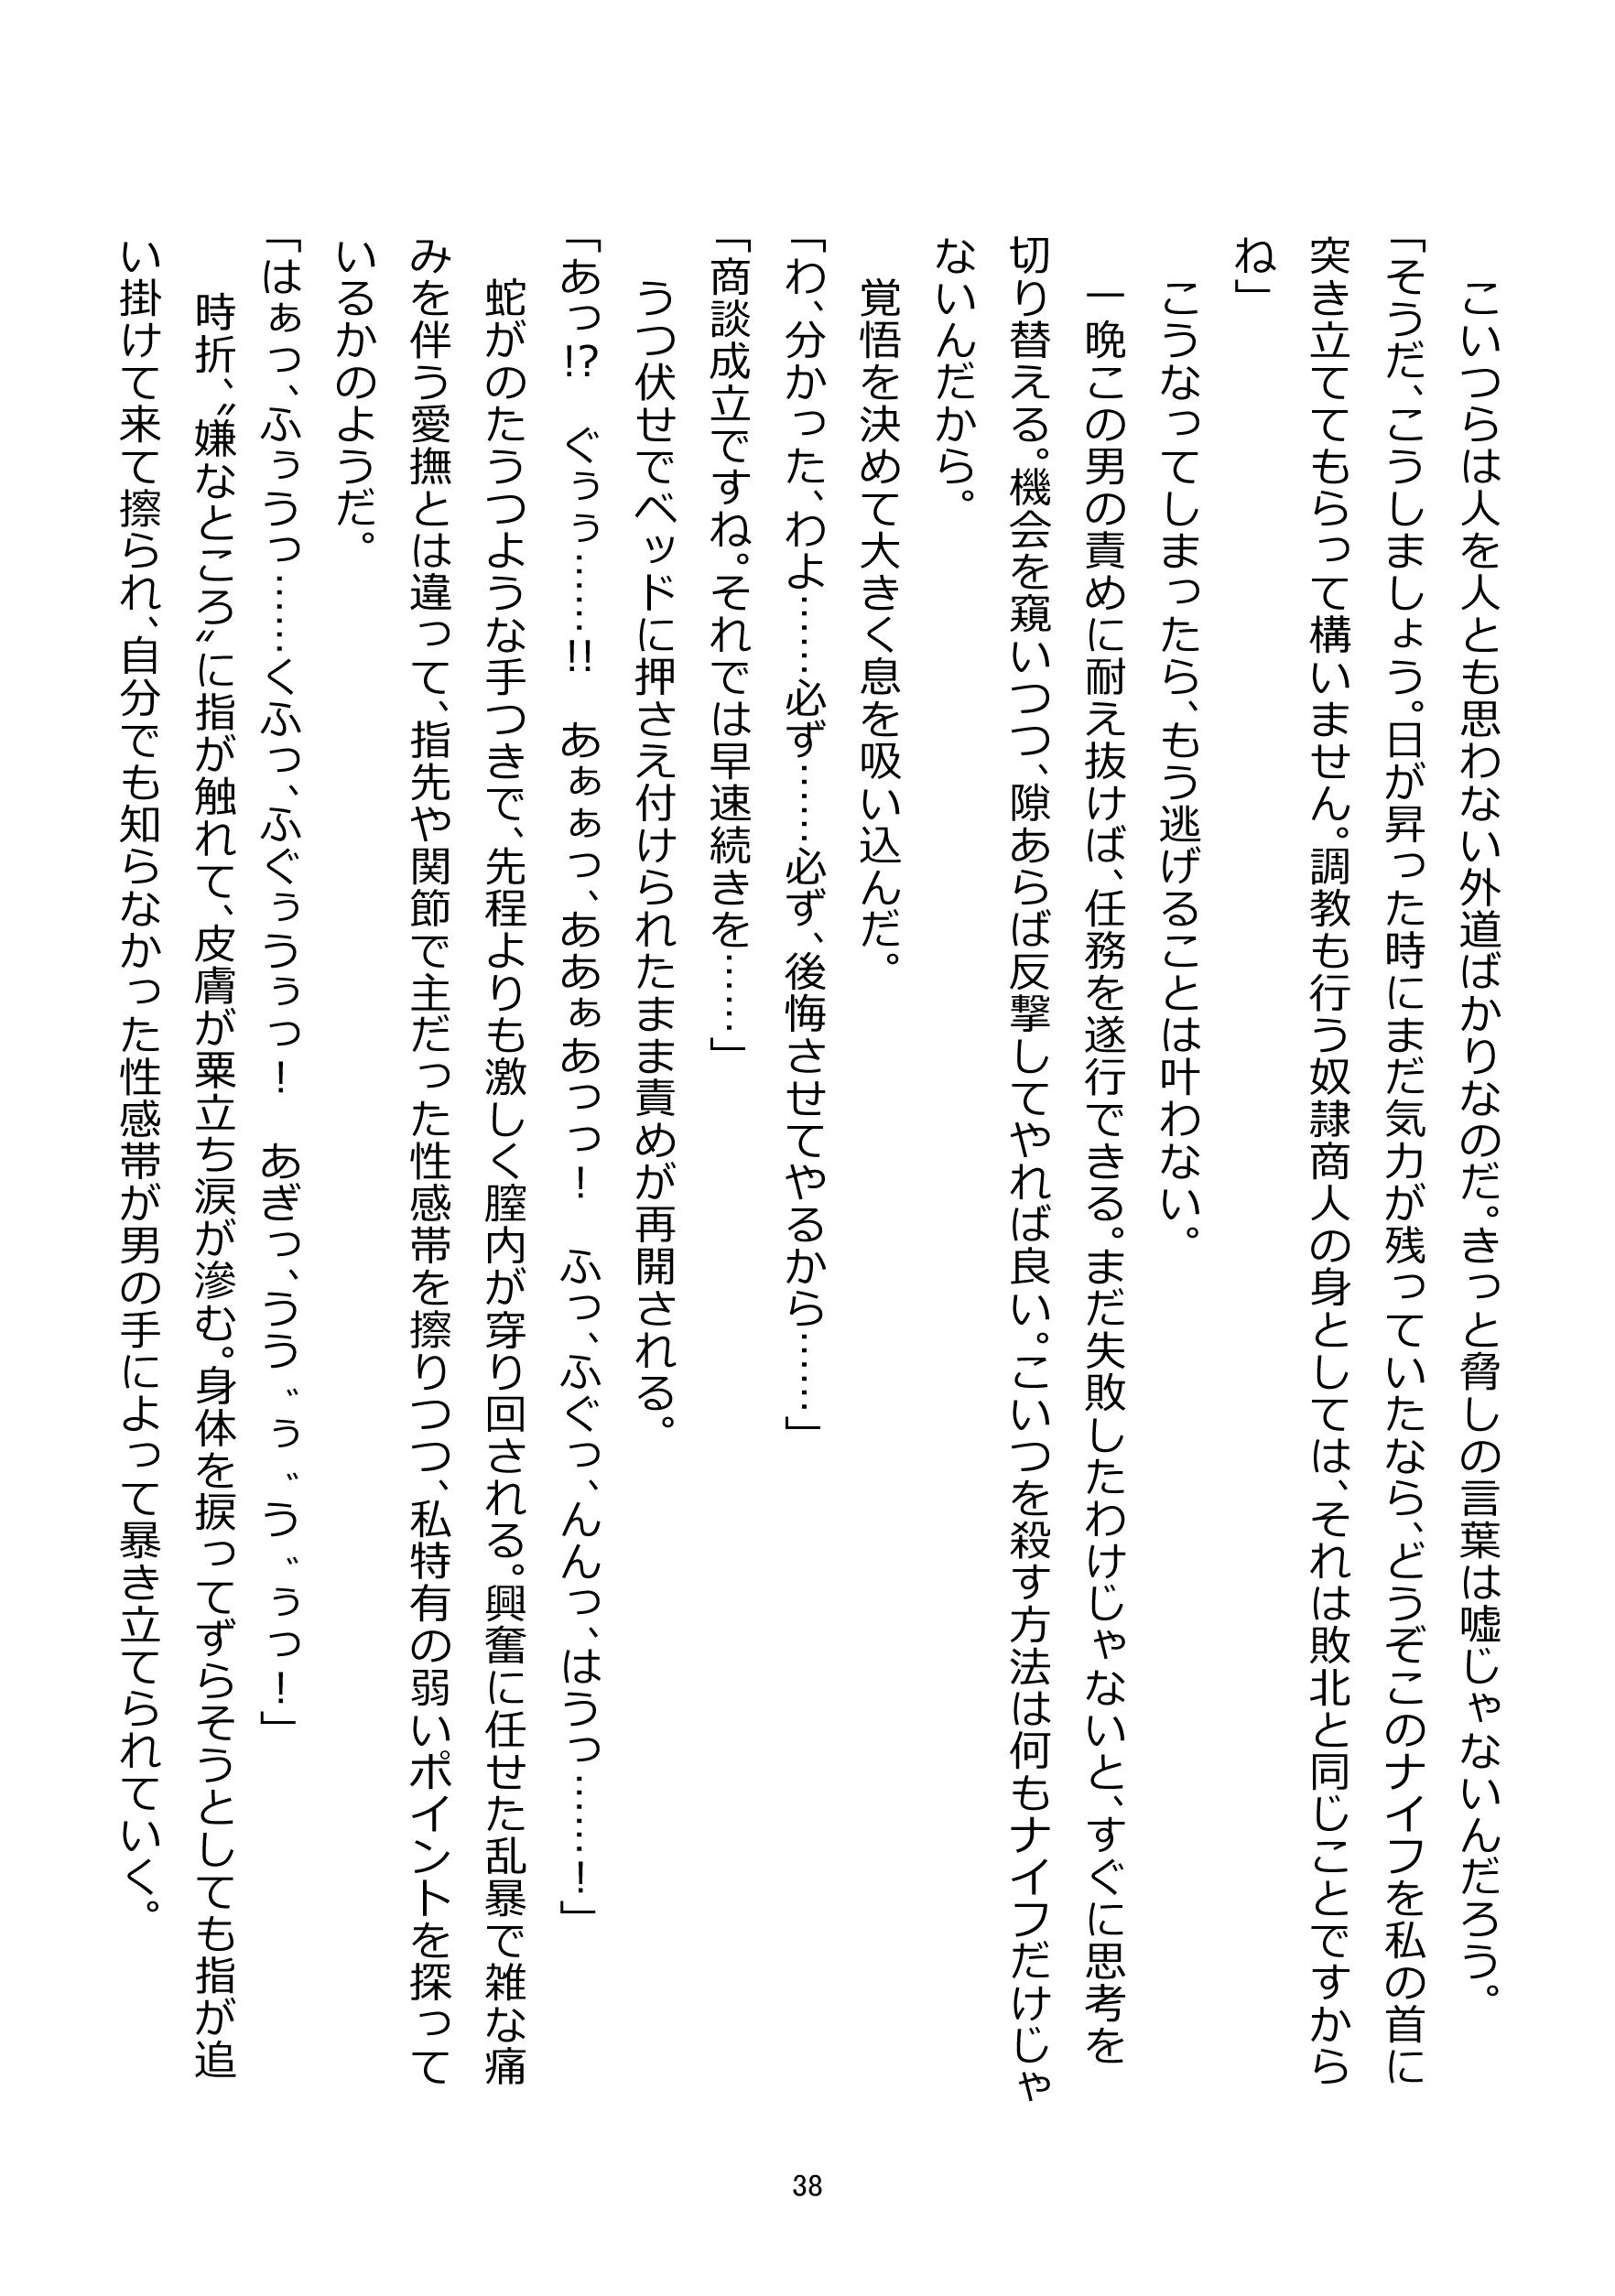 こいつらは人を人とも思わない外道ばかりなのだ。きっと脅しの言葉は嘘じゃないんだろう。
「そうだ、こうしましょう。日が昇った時にまだ気力が残っていたなら、どうぞこのナイフを私の首に
突き立ててもらって構いません。調教も行う奴隷商人の身としては、それは敗北と同じことですから
ね」
　こうなってしまったら、もう逃げることは叶わない。
　一晩この男の責めに耐え抜けば、任務を遂行できる。まだ失敗したわけじゃないと、すぐに思考を
切り替える。機会を窺いつつ、隙あらば反撃してやれば良い。こいつを殺す方法は何もナイフだけじゃ
ないんだから。
　覚悟を決めて大きく息を吸い込んだ。
「わ、分かった、わよ……必ず……必ず、後悔させてやるから……」
「商談成立ですね。それでは早速続きを……」
　うつ伏せでベッドに押さえ付けられたまま責めが再開される。
「あっ⁉　ぐぅぅ……‼　あぁぁっ、ああぁあっっ！　ふっ、ふぐっ、んんっ、はうっ……！」
　蛇がのたうつような手つきで、先程よりも激しく膣内が穿り回される。興奮に任せた乱暴で雑な痛
みを伴う愛撫とは違って、指先や関節で主だった性感帯を擦りつつ、私特有の弱いポイントを探って
いるかのようだ。
「はぁっ、ふぅうっ……くふっ、ふぐぅうぅっ！　あぎっ、うう゛ぅ゛う゛ぅっ！」
　時折、〝嫌なところ〟に指が触れて、皮膚が粟立ち涙が滲む。身体を捩ってずらそうとしても指が追
い掛けて来て擦られ、自分でも知らなかった性感帯が男の手によって暴き立てられていく。
38